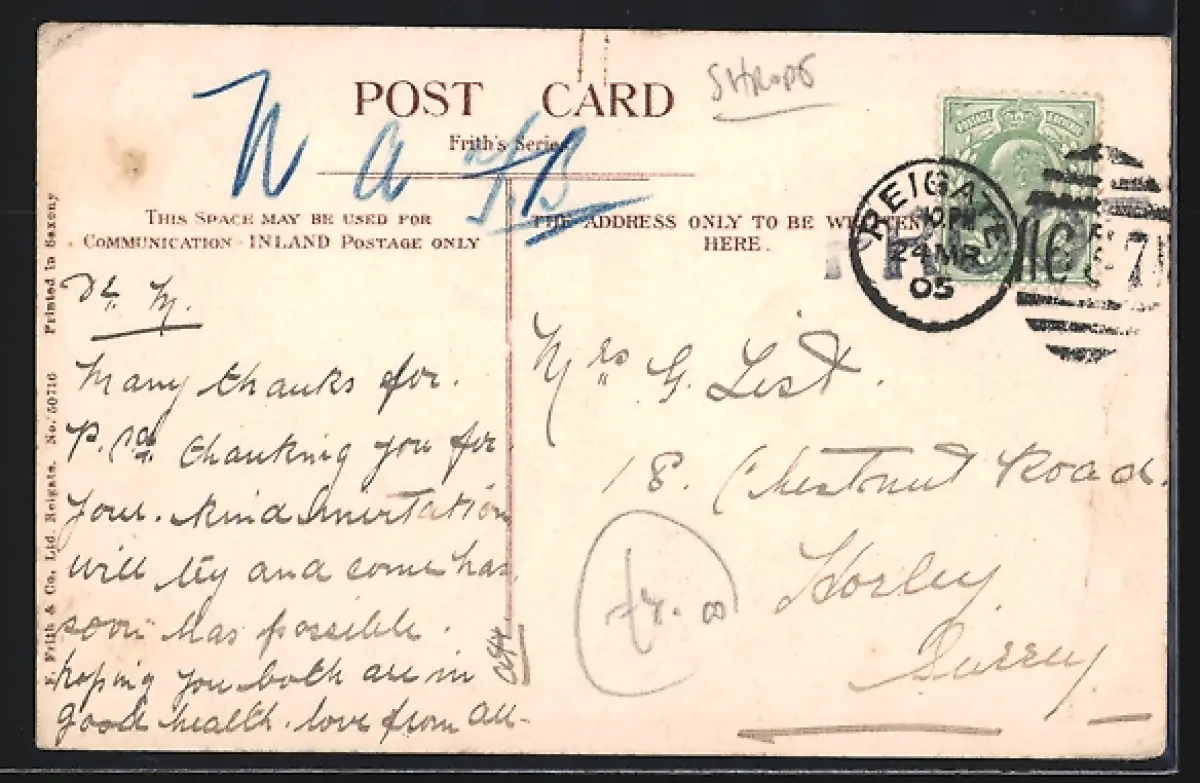 POST CARD
SHROPS
Frith's Series
N a
THIS SPACE MAY BE USED FOR
COMMUNICATION - INLAND POSTAGE ONLY
THE ADDRESS ONLY TO BE WRITTEN
HERE.
REIGATE
10.PM
24 MR
05
Printed in Saxony
F. Frith & Co., Ltd. Reigate. No. 50716
Dr. M.
Many thanks for.
P. Cd. thanking you for
your. kind invertation
will try and come has
soon has possible.
hoping you both are in
good health. love from all-
Mrs G. List.
18. Chestnut Road.
Horley
Surrey